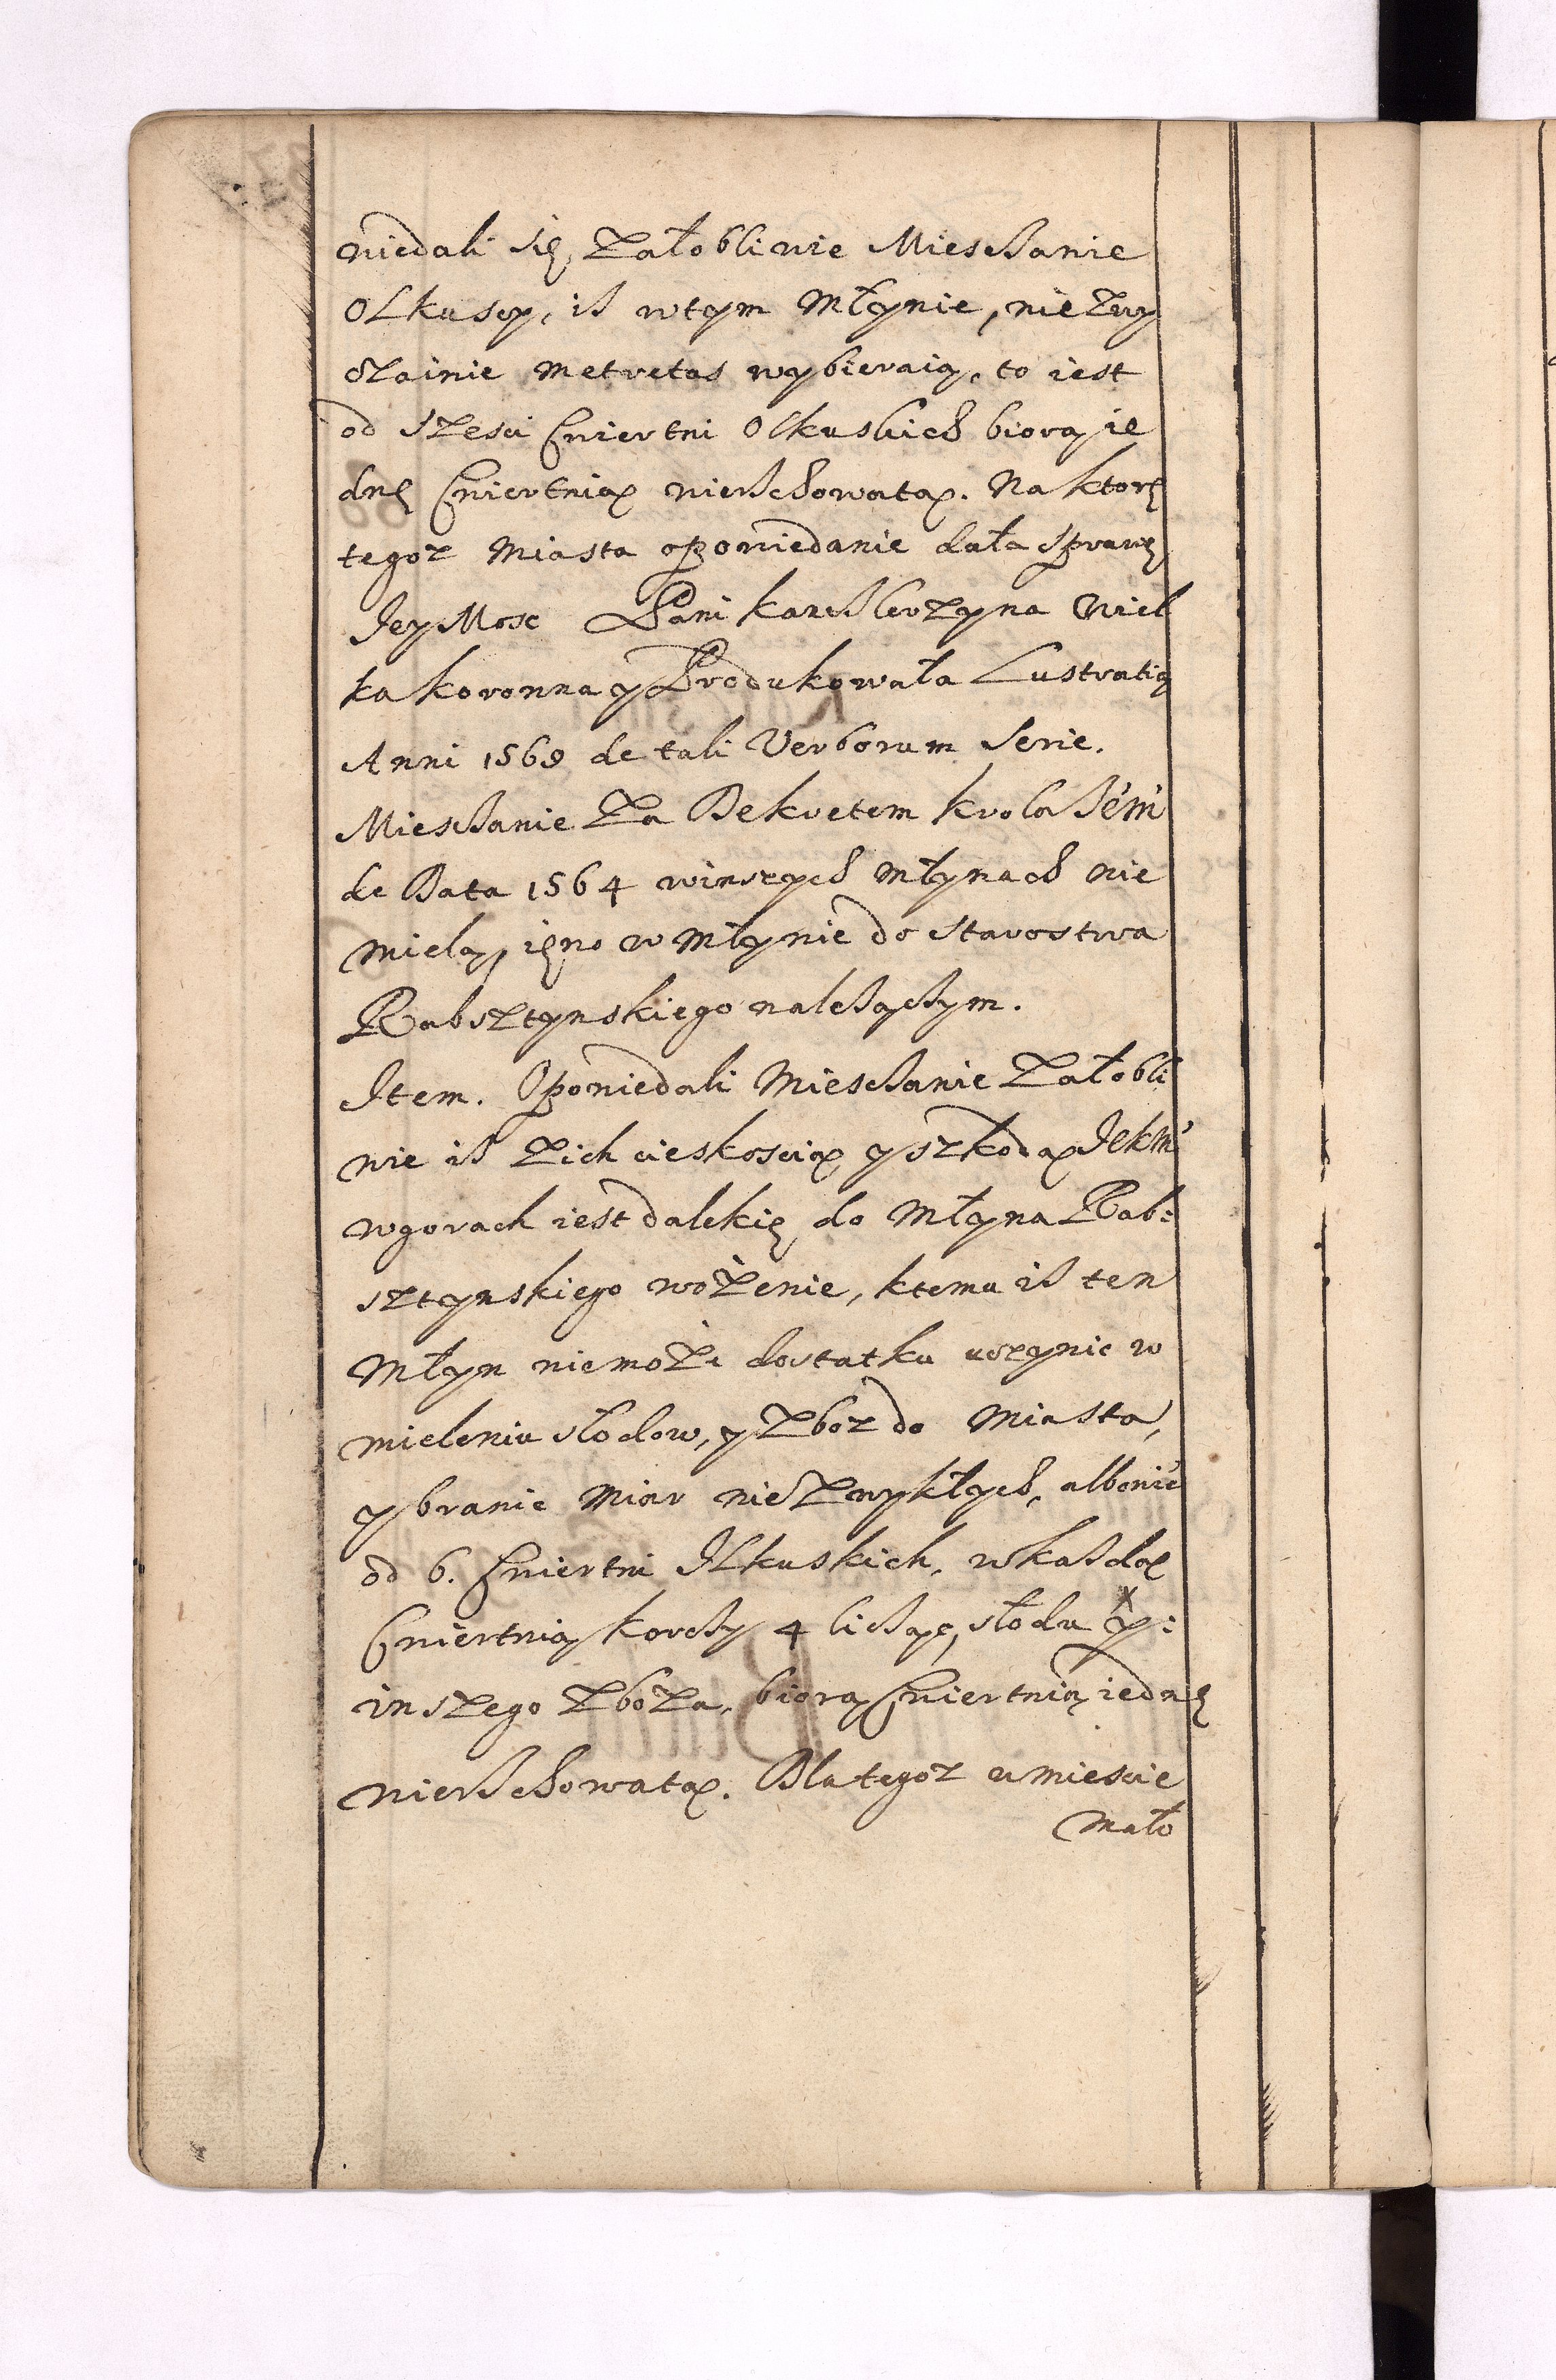 niedali się załobliwie Miesczanie
Olkuscy, isz wtym Młynie, niezwy
czainie metretas wybieraią, to iest
od szesci Cwiertni Olkuskich biorą ie
dnę Cwiertnią wierzchowatą. Na ktore
tegoz Miasta opowiedanie dała sprawę
Jey Mosc Pani Kanclerzyna Wiel
ka koronna y Produkowała Lustratią
Anni 1569 de tali Verborum Serie.
Miesczanie za Dekretem krola Jé̍m̍
de Data 1564 winszych młynach nie
mielą, ieno w Młynie do starostwa
Rabsztynskiego nalezączym.
Item. Opowiedali Miesczanie załobli
wie isz zich cieskoscią y szkodą Jekm̍
wgorach iest dalekie do Młyna Rab:
sztynskiego wożenie, ktemu isz ten
Młyn niemoże dostatku uczynic w
mieleniu słodow, y zboz do Miasta,
y branie Miar niezwykłych, albonie
od 6. Cwiertni Ilkuskich, wkaszdą
Cwiertnią korczy 4 licząc, słodu y:
inszego zboża, biorą Cwiertnią iednę
wierzchowatą. Dlategoz umiescie
mało